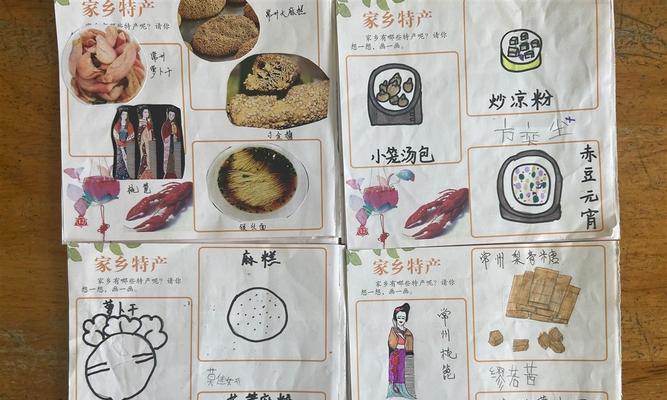 家乡特产
家乡有哪些特产呢？请你
想一想，画一画。
常州
萝卜干
常州大麻糕
梳篦
银丝面
家乡特产
家乡有哪些特产呢？请你
想一想，画一画。
小笼汤包
炒凉粉
赤豆元宵
家乡特产
家乡有哪些特产呢？请你
想一想，画一画。
萝卜干
麻糕
家乡特产
家乡有哪些特产呢？请你
想一想，画一画。
常州梳篦
常州梨膏糖
缪若茜